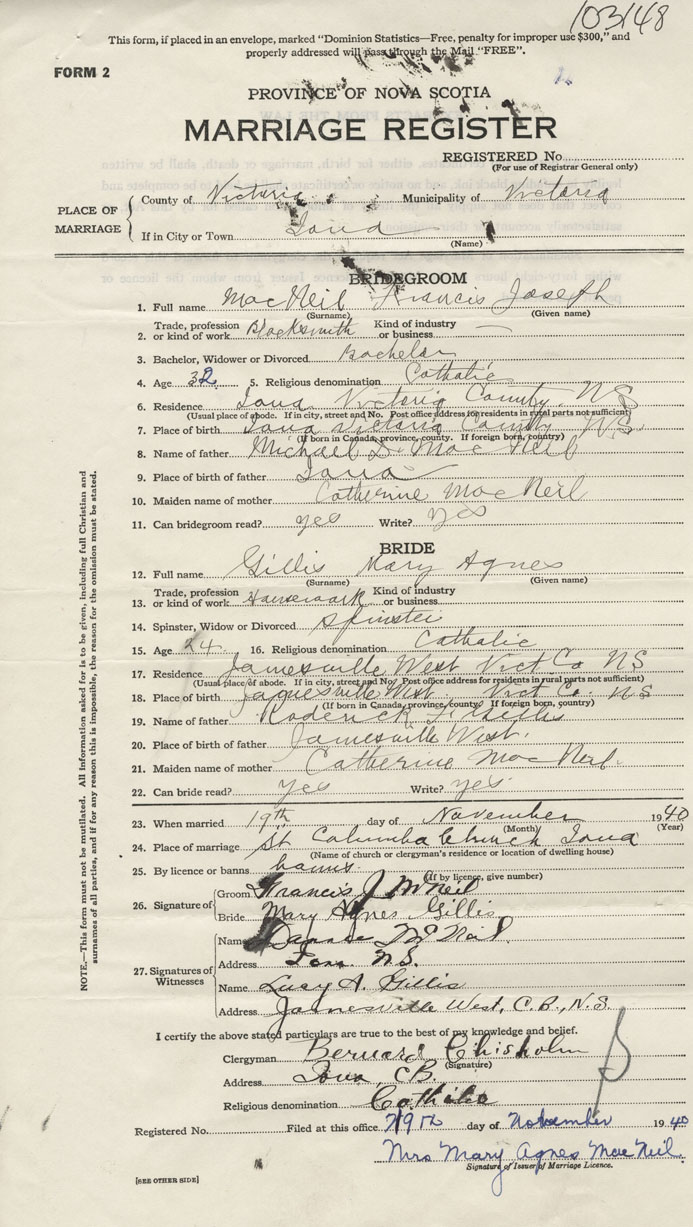 103148
This form, if placed in an envelope, marked "Dominion Statistics—Free, penalty for improper use $300," and
properly addressed will pass through the Mail "FREE".
FORM 2
PROVINCE OF NOVA SCOTIA
MARRIAGE REGISTER
REGISTERED No.
(For use of Registrar General only)
PLACE OF MARRIAGE
County of Victoria Municipality of Victoria
If in City or Town Iona
(Name)
BRIDEGROOM
1. Full name MacNeil Francis Joseph
(Surname) (Given name)
2. Trade, profession or kind of work Blacksmith Kind of industry or business —
3. Bachelor, Widower or Divorced Bachelor
4. Age 32 5. Religious denomination Catholic
6. Residence Iona Victoria County NS
(Usual place of abode. If in city, street and No. Post office address for residents in rural parts not sufficient)
7. Place of birth Iona Victoria County NS
(If born in Canada, province, county. If foreign born, country)
8. Name of father Michael D. MacNeil
9. Place of birth of father Iona
10. Maiden name of mother Catherine MacNeil
11. Can bridegroom read? yes Write? yes
BRIDE
12. Full name Gillis Mary Agnes
(Surname) (Given name)
13. Trade, profession or kind of work Housework Kind of industry or business
14. Spinster, Widow or Divorced Spinster
15. Age 24 16. Religious denomination Catholic
17. Residence Jamesville West Vict Co NS
(Usual place of abode. If in city, street and No. Post office address for residents in rural parts not sufficient)
18. Place of birth Jamesville West. Vict Co. NS
(If born in Canada, province, county. If foreign born, country)
19. Name of father Roderick Gillis
20. Place of birth of father Jamesville West.
21. Maiden name of mother Catherine MacNeil.
22. Can bride read? yes Write? yes
23. When married 19th day of November 1940
(Month) (Year)
24. Place of marriage St Columba Church Iona
(Name of church or clergyman's residence or location of dwelling house)
25. By licence or banns banns
(If by licence, give number)
26. Signature of
Groom Francis J McNeil
Bride Mary Agnes Gillis
27. Signatures of Witnesses
Name McNeil
Address N.S.
Name Lucy A. Gillis
Address Jamesville West, C.B., N.S.
I certify the above stated particulars are true to the best of my knowledge and belief.
Clergyman Bernard Chisholm
(Signature)
Address Iona, CB
Religious denomination Catholic
Registered No. Filed at this office 19th day of November 1940
Mrs Mary Agnes MacNeil.
Signature of Issuer of Marriage Licence.
[SEE OTHER SIDE]
NOTE.—This form must not be mutilated. All information asked for is to be given, including full Christian and
surnames of all parties, and if for any reason this is impossible, the reason for the omission must be stated.